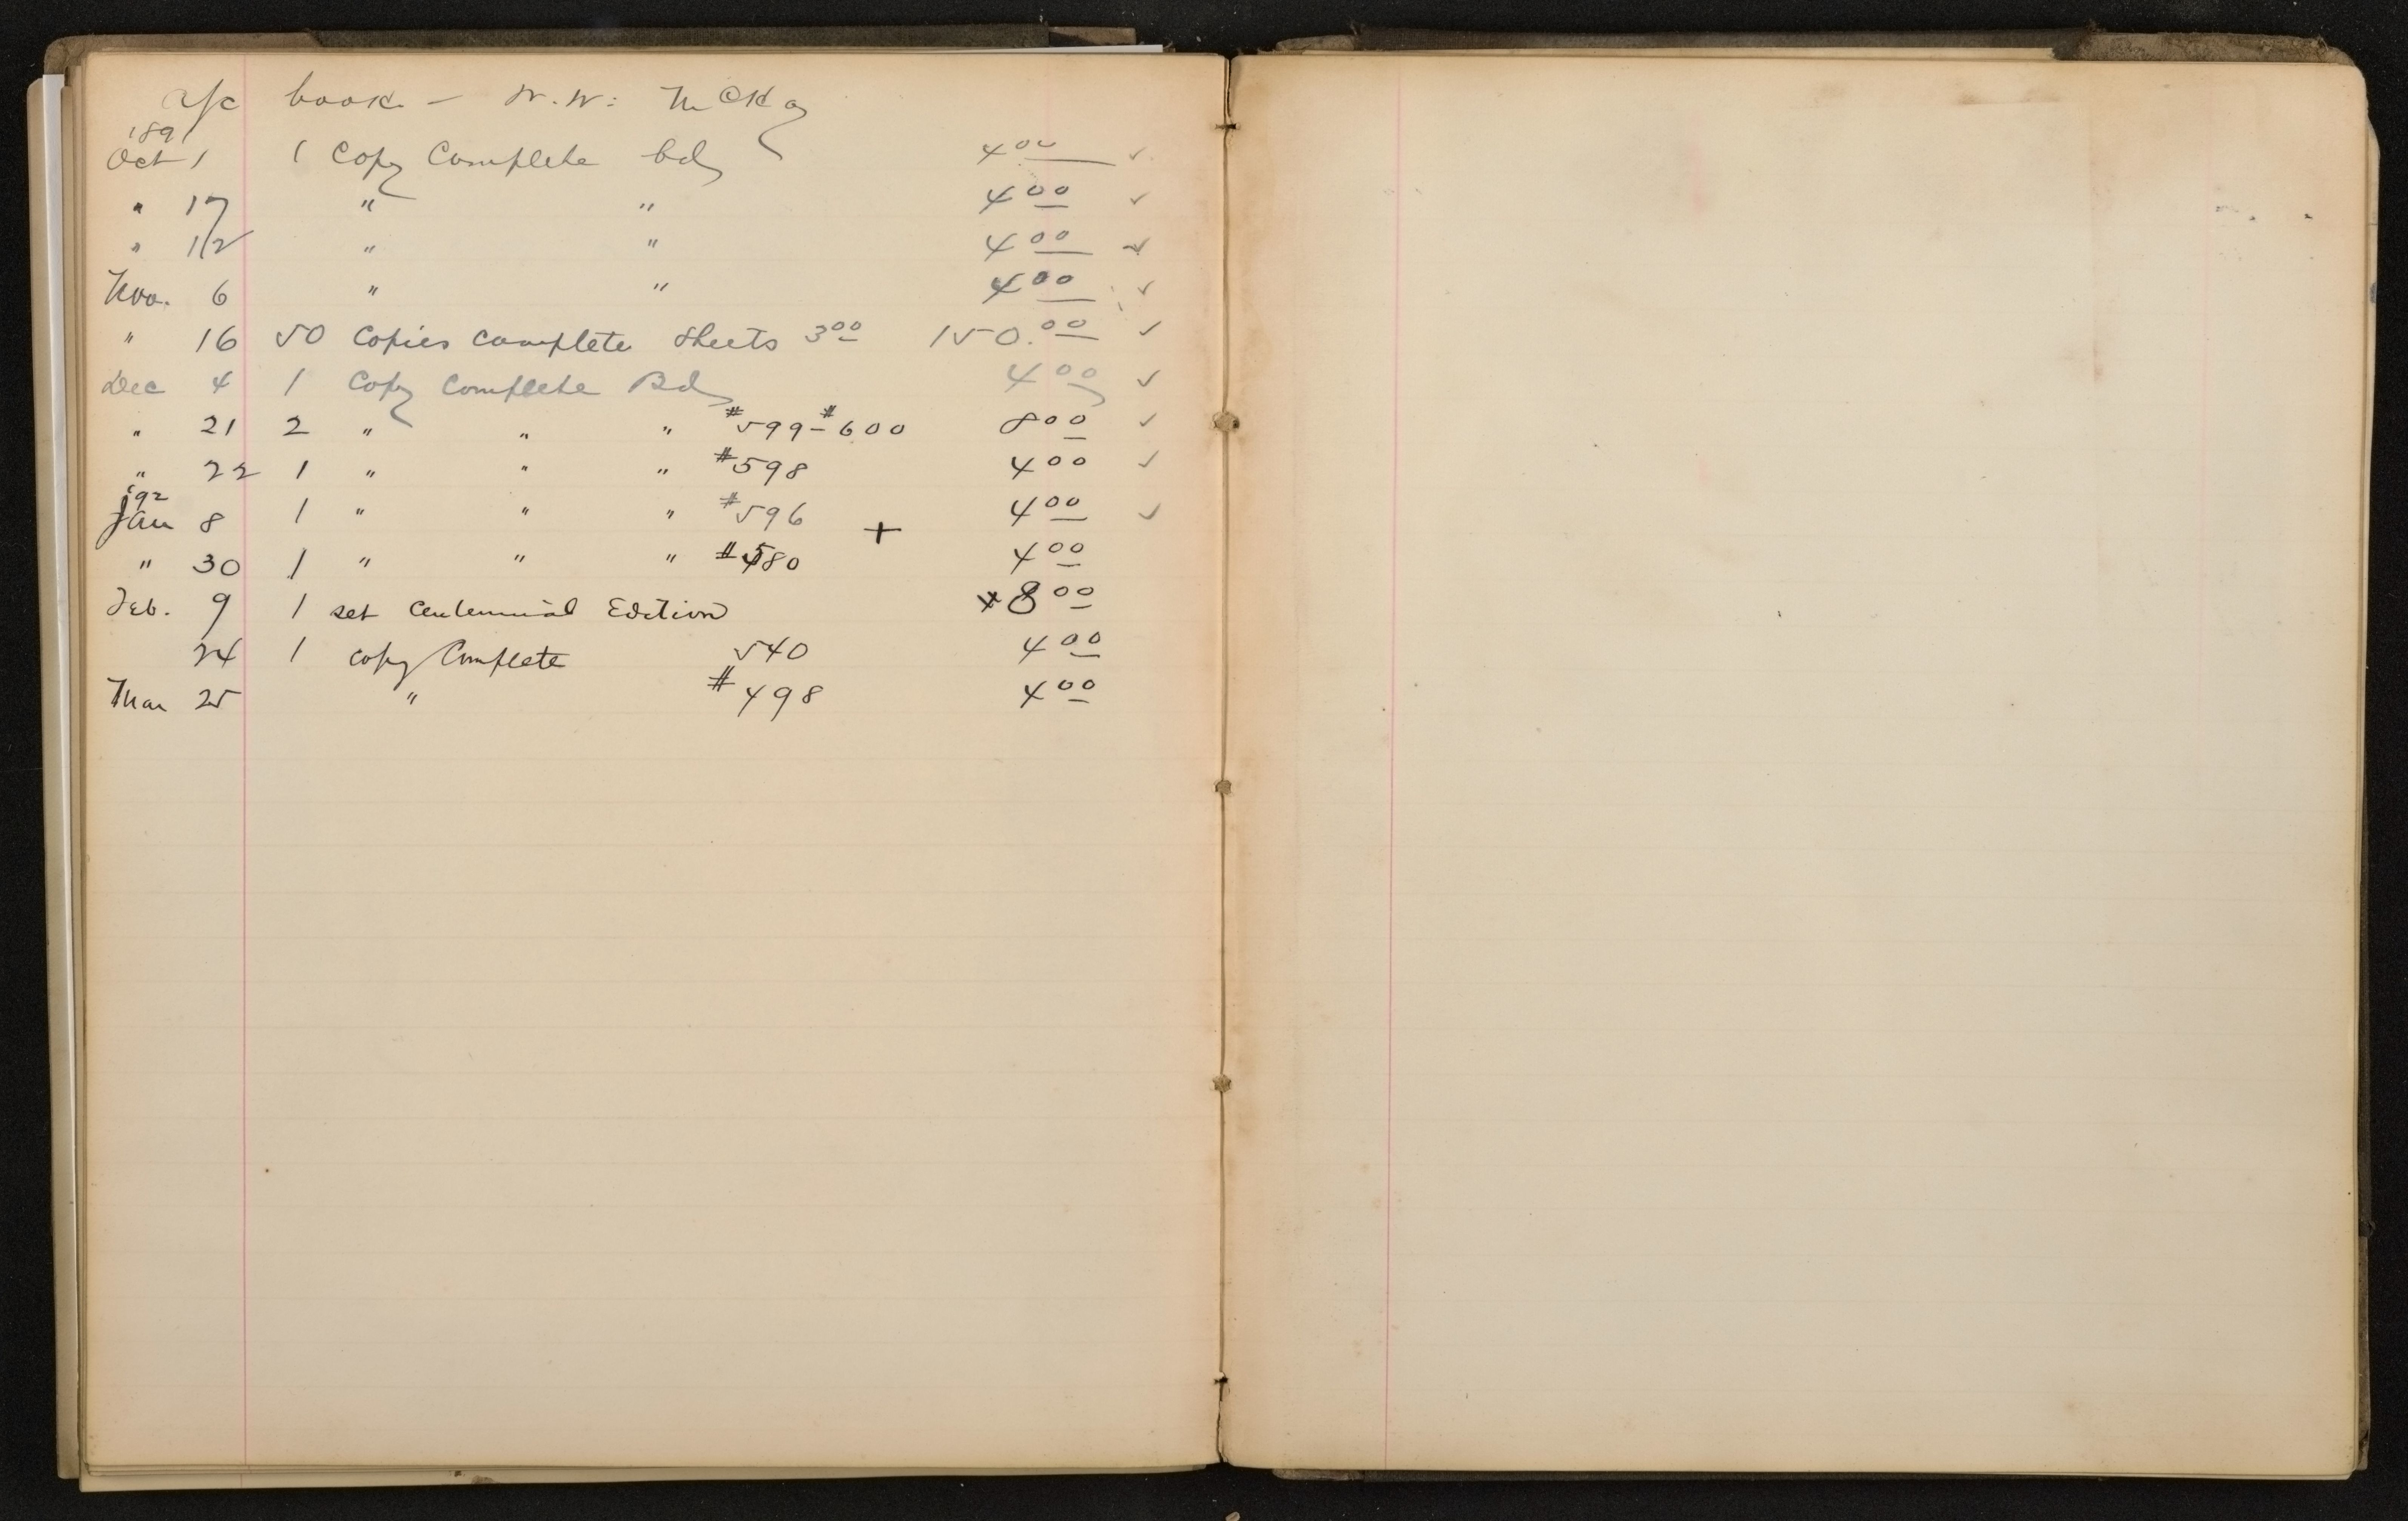 a/c book — D. McKay
1891
Oct 1 1 Copy Complete bd 4 00 ✓
" 17 " " 4 00 ✓
" 12 " " 4 00 ✓
Nov. 6 " " 4 00 ✓
" 16 50 Copies complete sheets 3 00 150.00 ✓
Dec 4 1 Copy Complete Bd 4 00 ✓
" 21 2 " " " #599-#600 8 00 ✓
" 22 1 " " " #598 4 00 ✓
'92
Jan 8 1 " " " #596 4 00 ✓
+
" 30 1 " " " #580 4 00
Feb. 9 1 set Centennial Edition 8 00
24 1 copy Complete 540 4 00
Mar 25 " #498 4 00